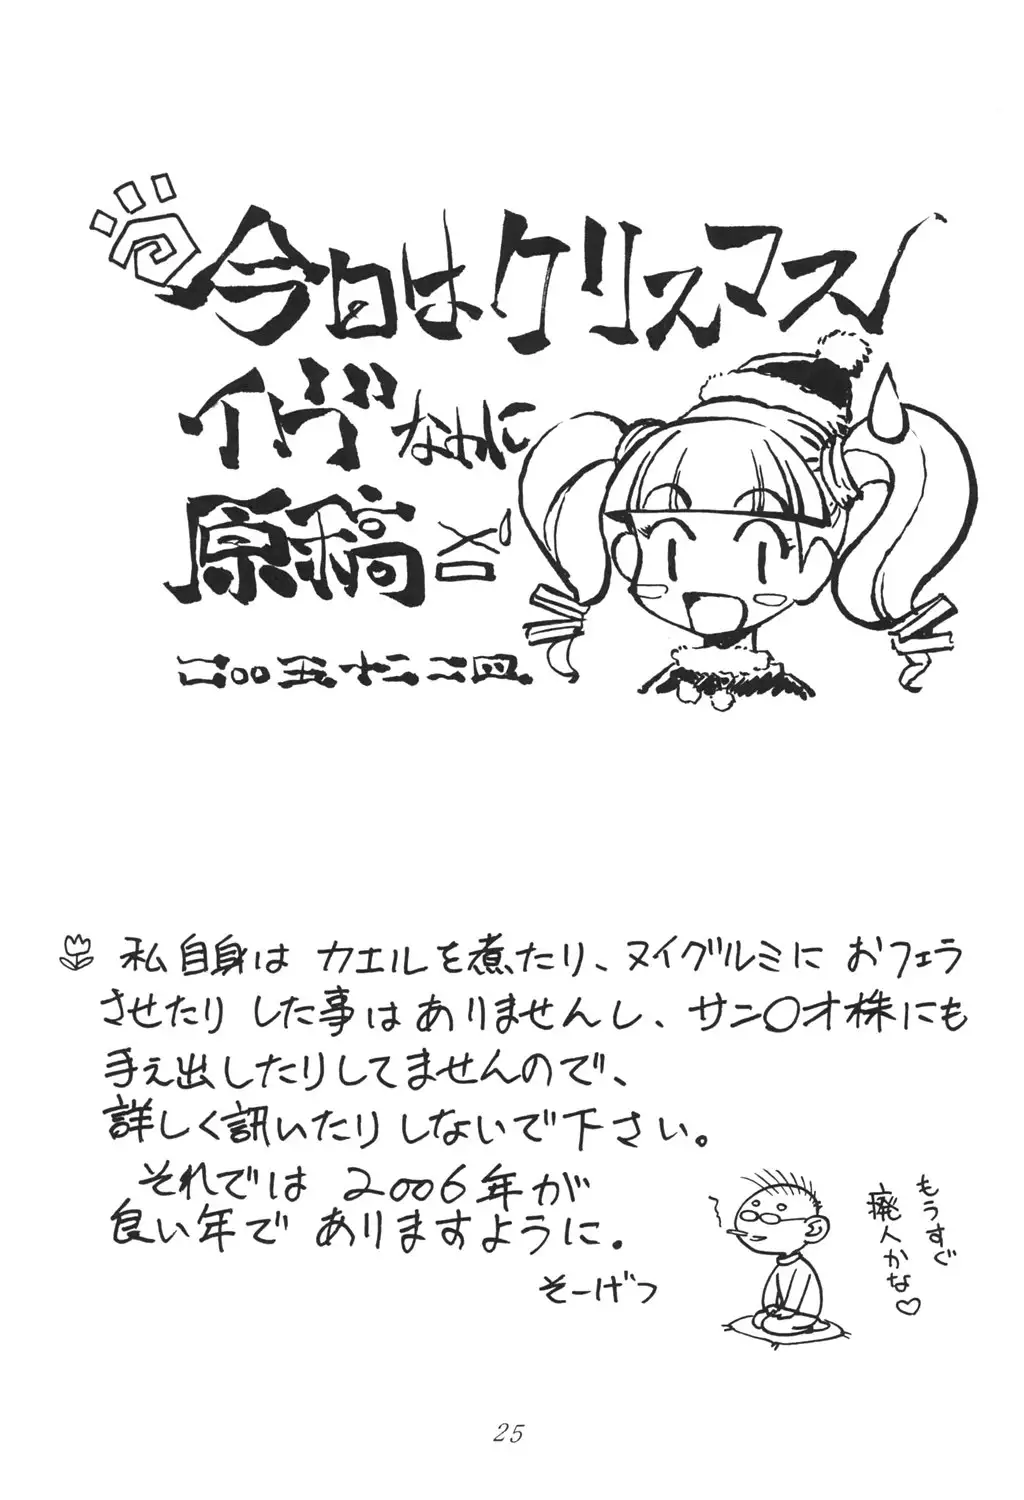 今日はクリスマス
イヴなのに
原稿
二〇〇五十二二四
私自身は カエルを煮たり、ヌイグルミに おフェラ
させたり した事はありませんし、サン〇オ株にも
手え出したりしてませんので、
詳しく訊いたりしないで下さい。
それでは 2006年が
良い年で ありますように.
そーげつ
もうすぐ
廃人かな♡
25